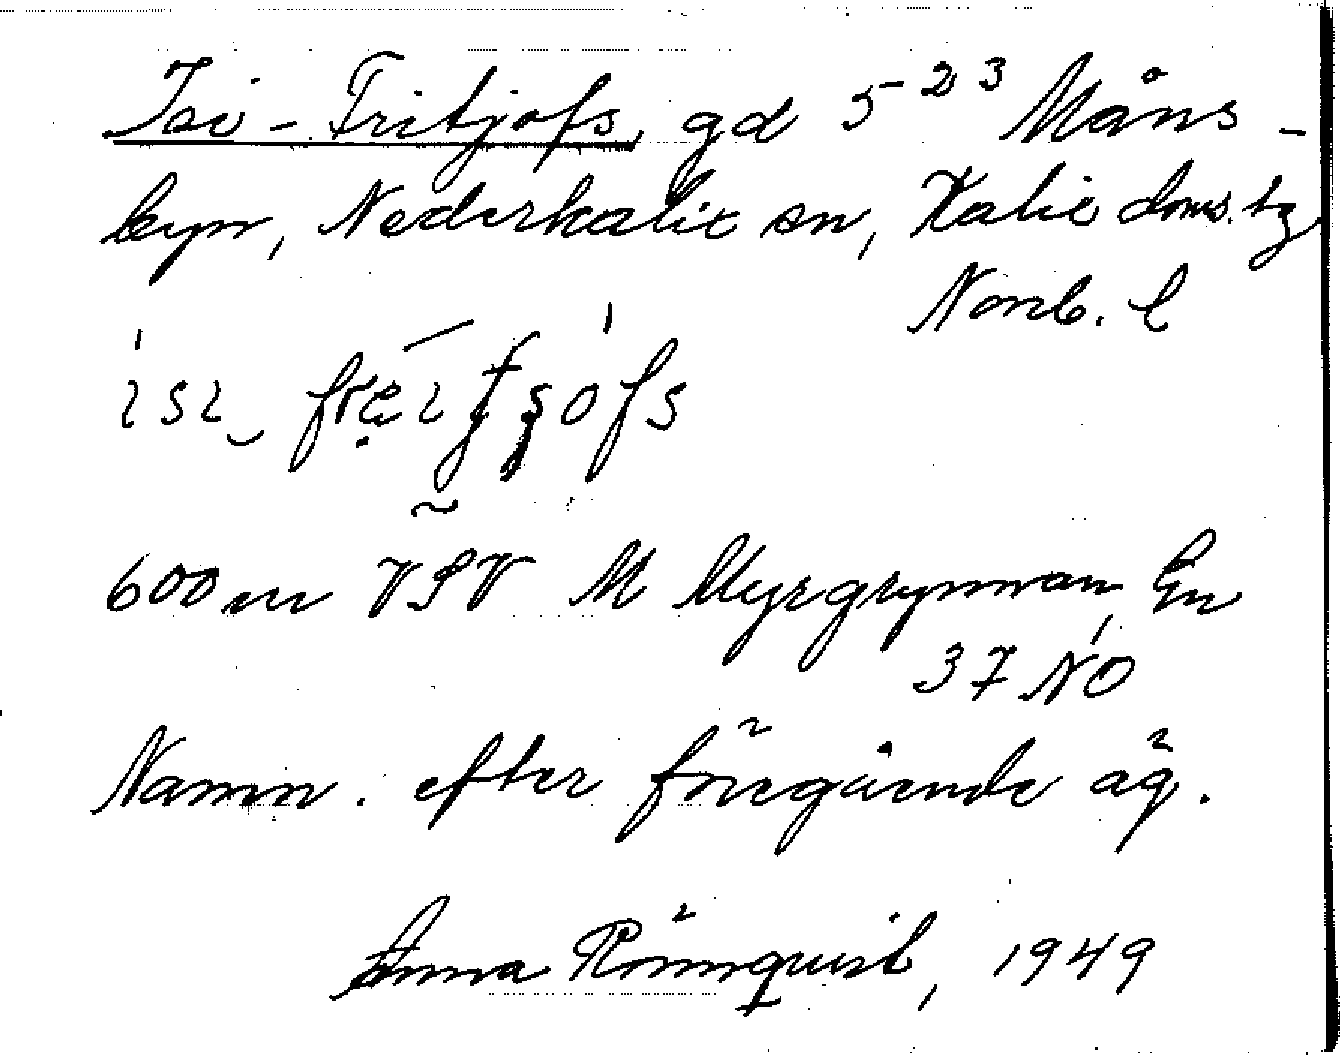 Isi-Fritjofs, gd 5²³ Måns-
byn, Nederkalix sn, Kalix doms. tg
Norrb. l
600 m VSV M Myrgrynnan, En
37 NO
Namn. efter föregående äg.
Anna Rönnquist, 1949